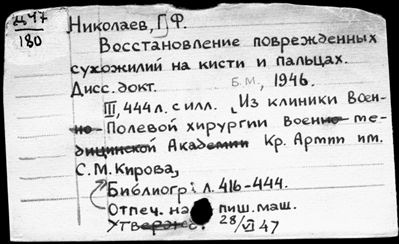 Д47
180
Николаев, Г.Ф.
Восстановление поврежденных
сухожилий на кисти и пальцах.
Дисс. докт. Б.М., 1946.
III, 444 л. с илл. (Из клиники Воен-
но-Полевой хирургии Военно-ме-
дицинской Академии Кр. Армии им.
С.М. Кирова,
Библиогр: л. 416-444.
Отпеч. на пиш. маш.
Утвержд. 28/VI 47